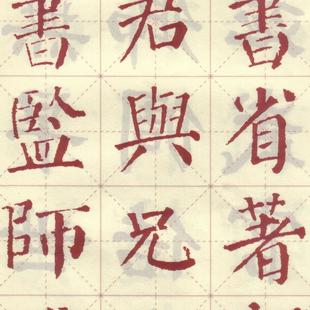 書省著
君與兄
書監師